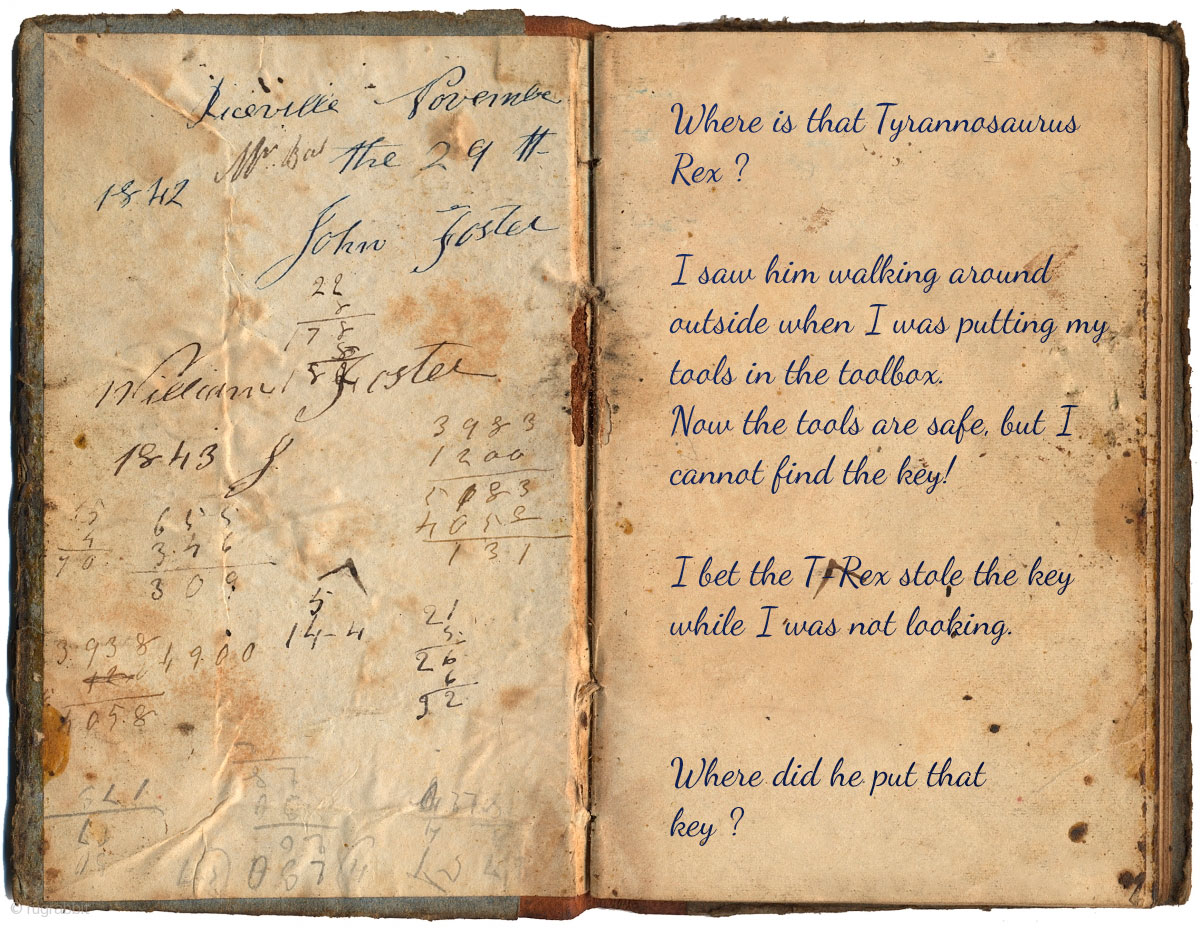 Riceville Novembe
Mr. the 29 th
1842
John Foster
22
8
178
William Foster
1843 J
3983
1200
5183
4052
131
15
4
70
655
346
309
5
14-4
21
5
26
6
32
3938
4900
5058
621
Where is that Tyrannosaurus
Rex ?
I saw him walking around
outside when I was putting my
tools in the toolbox.
Now the tools are safe, but I
cannot find the key!
I bet the T-Rex stole the key
while I was not looking.
Where did he put that
key ?
© rugrabbit